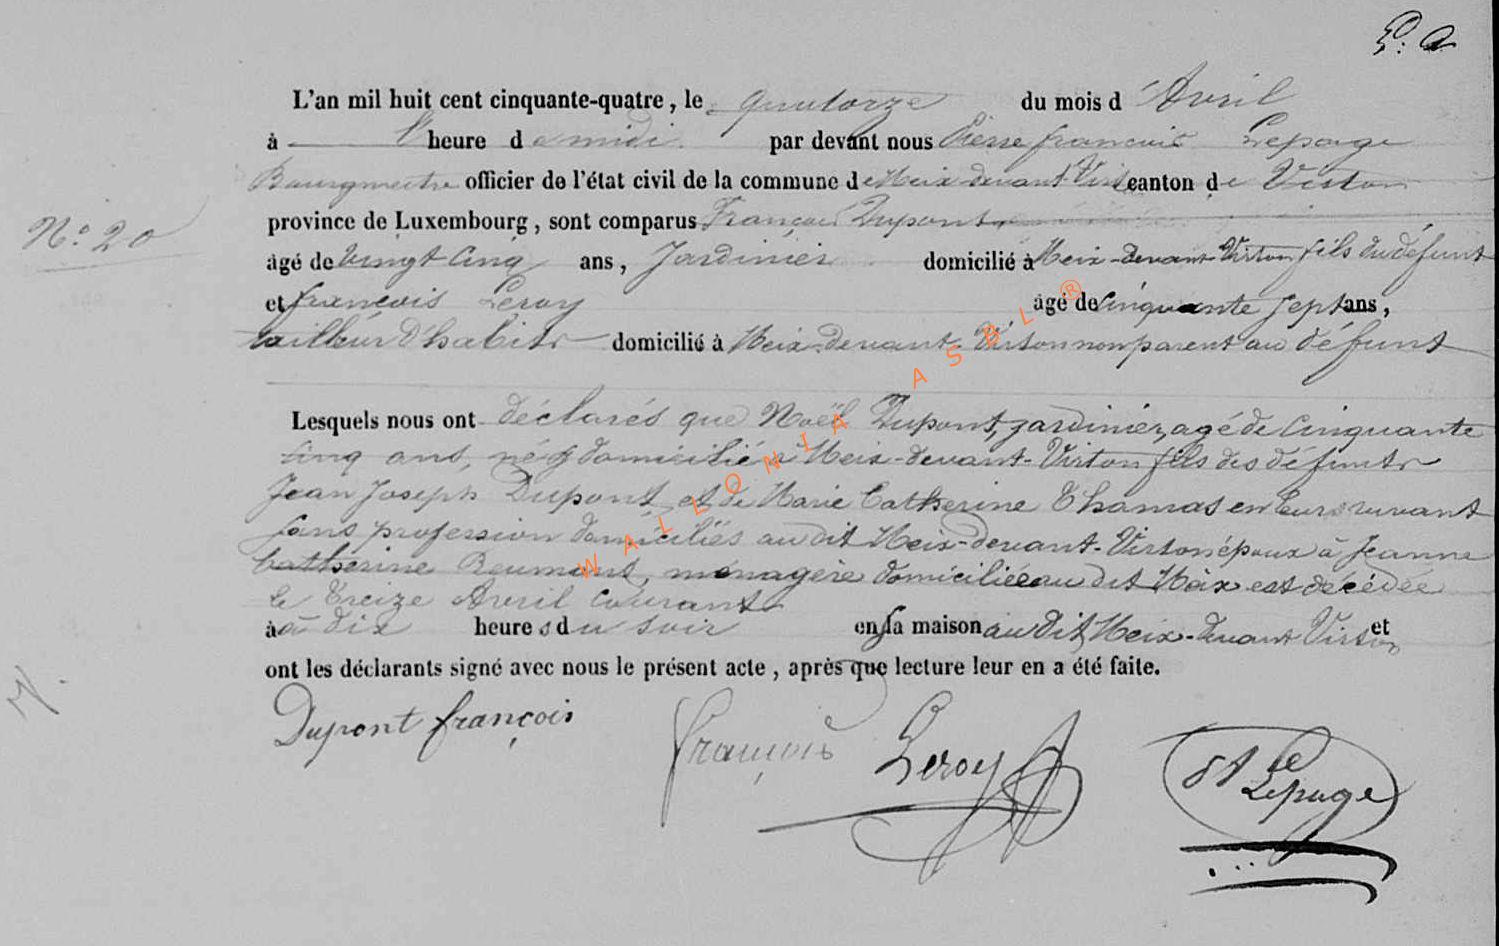 L'an mil huit cent cinquante-quatre, le quatorze du mois d'Avril
à l'heure de midi par devant nous Pierre francois Lepage
Bourgmestre officier de l'état civil de la commune de Meix-devant Virton canton de Virton
N.o 20
province de Luxembourg, sont comparus François Dupont
âgé de Vingt Cinq ans, Jardinier domicilié à Meix-devant-Virton fils du défunt
et françois Leroy âgé de Cinquante Sept ans,
tailleur d'habits domicilié à Meix-devant-Virton non parent au défunt
Lesquels nous ont déclarés que Noël Dupont, jardinier, agé de Cinquante
Cinq ans, né & domicilié à Meix-devant-Virton fils des défunts
Jean Joseph Dupont et de Marie Catherine Thomas en leurs vivant
sans profession domiciliés au dit Meix-devant-Virton époux à Jeanne
Catherine, ménagère domiciliée au dit Meix est décédée
le Treize Avril Courant
à à dix heures du soir en sa maison au dit Meix-devant Virton et
ont les déclarants signé avec nous le présent acte, après que lecture leur en a été faite.
Dupont françois
françois Leroy
Lepage
WALLONIA ASBL ®